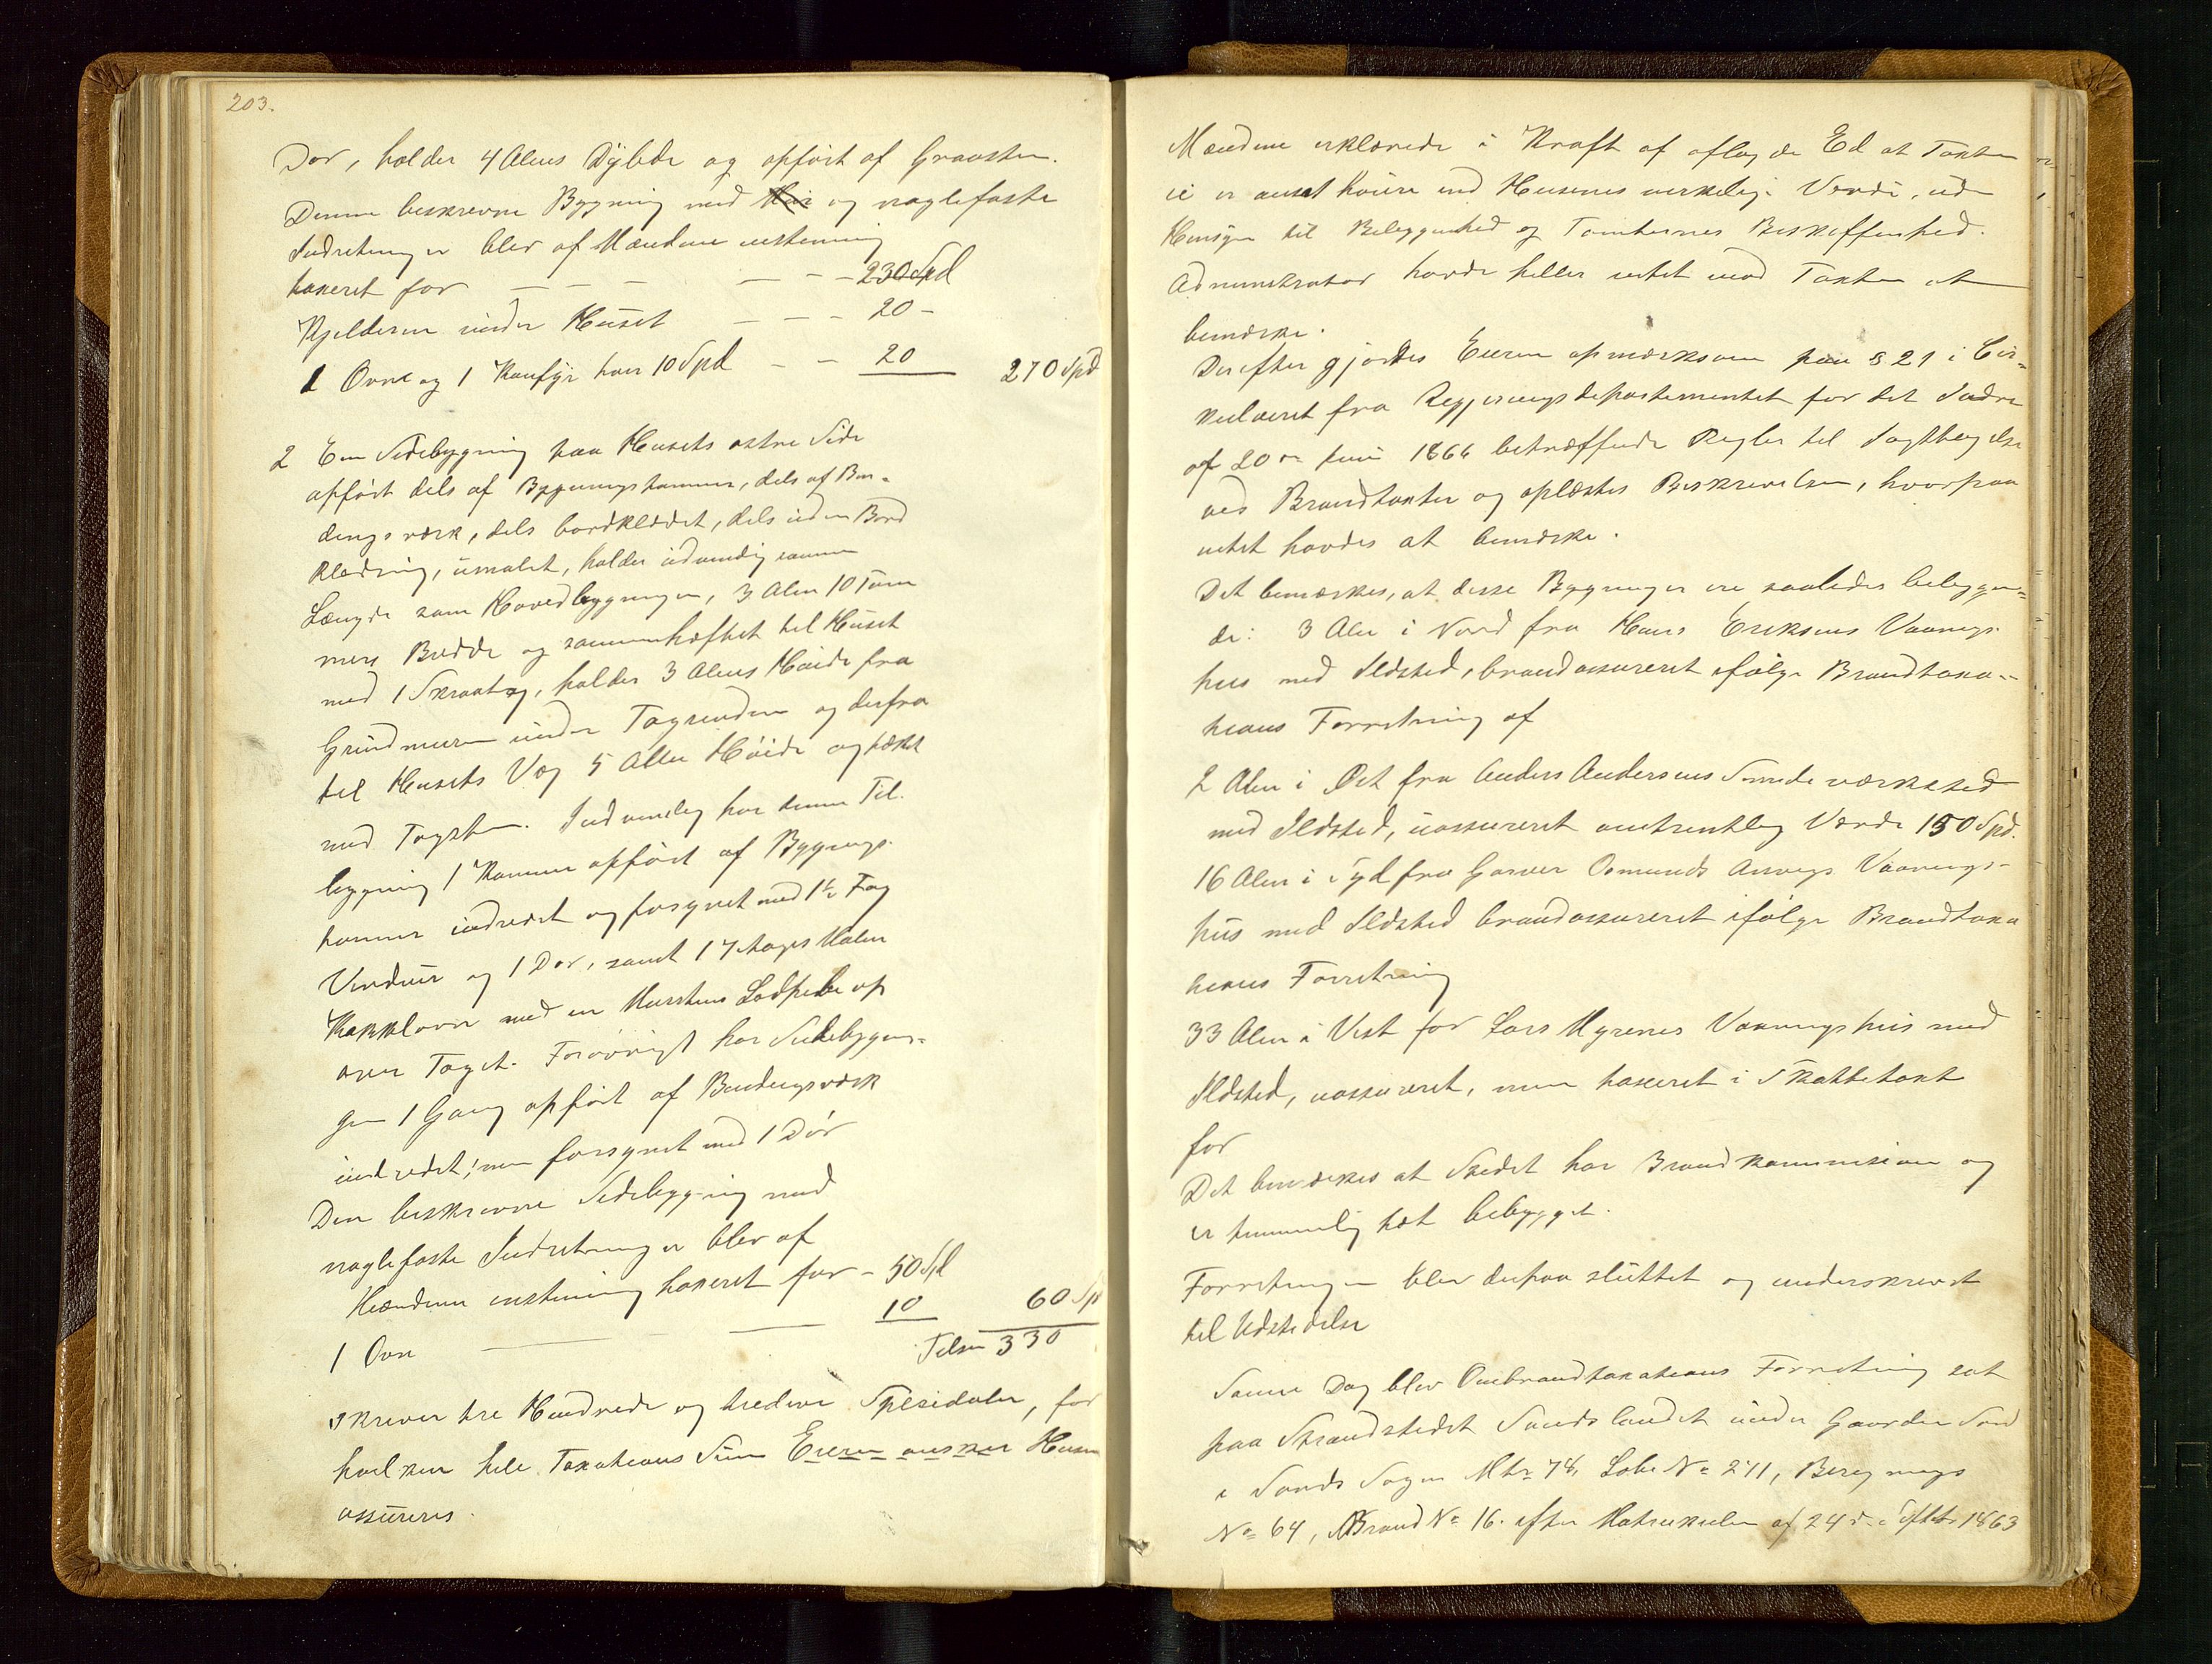 203.
Dør, holder 4 Alens Dybde og opført af Graasten.
Denne beskrevne Bygning med og naglefaste
Indretninger blev af Mændene enstemmig
taxeret for — — — — — — 230 Spd
Kjelderen under Huset — — — 20 —
1 Ovne og 1 Komfyr hver 10 Spd — — 20 270 Spd
2 Een Sidebygning paa Husets østre Side
opført dels af Bygningstømmer, dels af Bin-
dingsværk, dels bordklædt, dels uden Bord
klædning, umalet, holder udvendig samme
Længde som Hovedbygningen, 3 Alen 10 Tom
mers Bredde og sammenhæftet til Huset
med 1 Skraatag, holder 3 Alens Høide fra
Grundmuren under Tagrenden og derfra
til Husets Væg 5 Alen Høide og tækt
med Tagsten. Indvendig har denne Til-
bygning 1 Kammer opført af Bygnings-
tømmer indredet og forsynet med 1 1/2 Fag
Vinduer og 1 Dør, samt 1 Etages
Kakklovn med en Murstens Lodpibe op
over Taget. Forøvrigt har Sidebygnin-
gen 1 Gang opført af Bindingsværk
indredet, men forsynet med 1 Dør
Den beskrevne Sidebygning med
naglefaste Indretninger blev af
Mændene enstemmig taxeret for — 50 Spd
1 Ovn — — 10 60 Sp
Tilsm 330
skriver tre Hundrede og tredive Spesidaler, for
hvilken hele Taxations Sum Eieren ønsker Husene
assureres.
Mændene erklærede i Kraft af aflagde Ed at Taxten
ei er ansat høiere end Husenes verkelige Verdi, uden
Hensyn til Beliggenhed og Tomternes Beskaffenhed.
Administrator havde heller intet mod Taxten at
bemærke.
Derefter gjordes Eieren opmærksom paa § 21 i Cir-
kulæret fra Regjeringsdepartementet for det Indre
af 20de Juni 1866 betræffende Regler til Iagttagelse
ved Brandtaxter og oplæstes Beskrivelsen, hvorpaa
intet havdes at bemærke.
Det bemærkes, at disse Bygninger ere saaledes beliggen-
de: 3 Alen i Nord fra Hans Eriksens Vaanings-
hus med Ildsted, brandassureret ifølge Brandtaxa-
tions Forretning af
2 Alen i Øst fra Anders Andersens Smedeværksted
med Ildsted, uassureret omtrentlig Værdi 150 Spd.
16 Alen i Syd fra Garver Osmunds Vaanings-
hus med Ildsted brandassureret ifølge Brandtaxa
tions Forretning
33 Alen i Vest for Lars Myrenes Vaaningshus med
Ildsted, uassureret, men taxeret i Skattetaxt
for
Det bemærkes at Stedet har Brandkommission og
er temmelig tæt bebygget.
Forretningen blev derpaa sluttet og underskrevet
til Udstedelse
Samme Dag blev Ombrandtaxations Forretning sat
paa Strandstedet Sandslandet under Gaarden Sand
i Sands Sogn Mtr 78, Løbe No 211, Beregnings
No 64, Brand No 16. efter Matrikulen af 24de Septbr 1863